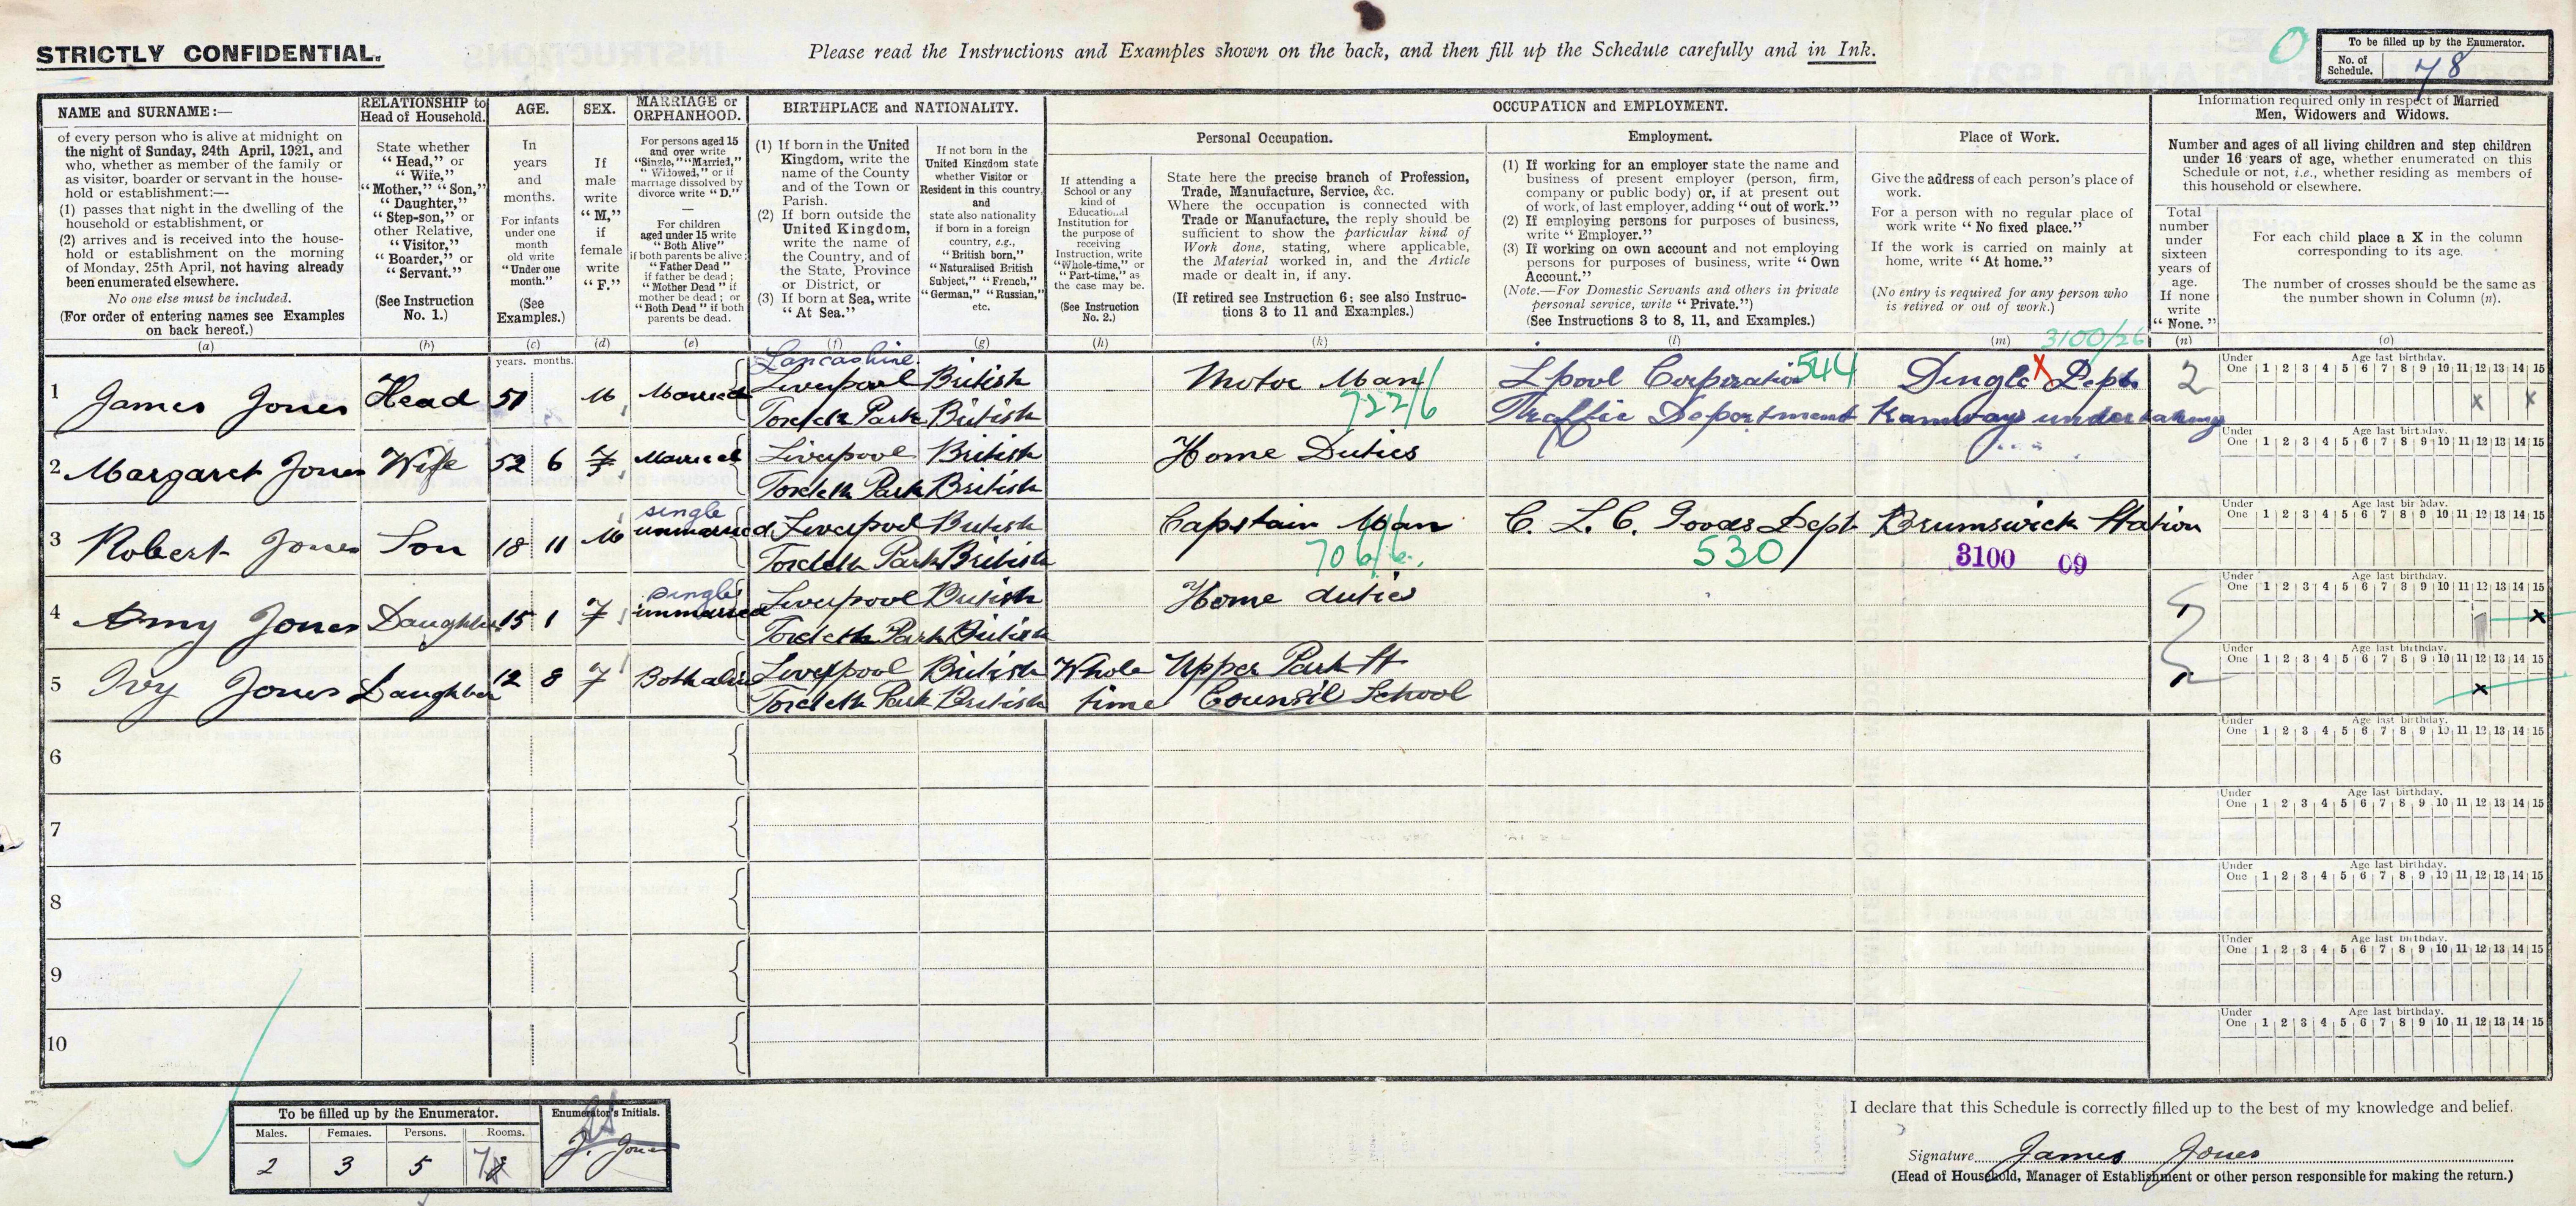 STRICTLY CONFIDENTIAL.
Please read the Instructions and Examples shown on the back, and then fill up the Schedule carefully and in Ink.
O
To be filled up by the Enumerator.
No. of Schedule. 78
NAME and SURNAME:—
of every person who is alive at midnight on
the night of Sunday, 24th April, 1921, and
who, whether as member of the family or
as visitor, boarder or servant in the house-
hold or establishment:—
(1) passes that night in the dwelling of the
household or establishment, or
(2) arrives and is received into the house-
hold or establishment on the morning
of Monday, 25th April, not having already
been enumerated elsewhere.
No one else must be included.
(For order of entering names see Examples
on back hereof.)
(a)
RELATIONSHIP to
Head of Household.
State whether
"Head," or
"Wife,"
"Mother," "Son,"
"Daughter,"
"Step-son," or
other Relative,
"Visitor,"
"Boarder," or
"Servant."
(See Instruction
No. 1.)
(b)
AGE.
In
years
and
months.
For infants
under one
month
old write
"Under one
month."
(See
Examples.)
(c)
years. months.
SEX.
If
male
write
"M,"
if
female
write
"F."
(d)
MARRIAGE or
ORPHANHOOD.
For persons aged 15
and over write
"Single," "Married,"
"Widowed," or if
marriage dissolved by
divorce write "D."
—
For children
aged under 15 write
"Both Alive"
if both parents be alive;
"Father Dead"
if father be dead;
"Mother Dead" if
mother be dead; or
"Both Dead" if both
parents be dead.
(e)
BIRTHPLACE and NATIONALITY.
(1) If born in the United
Kingdom, write the
name of the County
and of the Town or
Parish.
(2) If born outside the
United Kingdom,
write the name of
the Country, and of
the State, Province
or District, or
(3) If born at Sea, write
"At Sea."
(f)
If not born in the
United Kingdom state
whether Visitor or
Resident in this country,
and
state also nationality
if born in a foreign
country, e.g.,
"British born,"
"Naturalised British
Subject," "French,"
"German," "Russian,"
etc.
(g)
OCCUPATION and EMPLOYMENT.
Personal Occupation.
If attending a
School or any
kind of
Educational
Institution for
the purpose of
receiving
Instruction, write
"Whole-time," or
"Part-time," as
the case may be.
(See Instruction
No. 2.)
(h)
State here the precise branch of Profession,
Trade, Manufacture, Service, &c.
Where the occupation is connected with
Trade or Manufacture, the reply should be
sufficient to show the particular kind of
Work done, stating, where applicable,
the Material worked in, and the Article
made or dealt in, if any.
(If retired see Instruction 6; see also Instruc-
tions 3 to 11 and Examples.)
(k)
Employment.
(1) If working for an employer state the name and
business of present employer (person, firm,
company or public body) or, if at present out
of work, of last employer, adding "out of work."
(2) If employing persons for purposes of business,
write "Employer."
(3) If working on own account and not employing
persons for purposes of business, write "Own
Account."
(Note.—For Domestic Servants and others in private
personal service, write "Private.")
(See Instructions 3 to 8, 11, and Examples.)
(l)
Place of Work.
Give the address of each person's place of
work.
For a person with no regular place of
work write "No fixed place."
If the work is carried on mainly at
home, write "At home."
(No entry is required for any person who
is retired or out of work.)
(m)
3100/26
Information required only in respect of Married
Men, Widowers and Widows.
Number and ages of all living children and step children
under 16 years of age, whether enumerated on this
Schedule or not, i.e., whether residing as members of
this household or elsewhere.
Total
number
under
sixteen
years of
age.
If none
write
"None."
(n)
For each child place a X in the column
corresponding to its age.
The number of crosses should be the same as
the number shown in Column (n).
(o)
Lancashire
1 James Jones Head 51 M Married Liverpool British Motor Man L'pool Corporation 544 Dingle X Depts 2
Toxteth Park British 722/6 Traffic Department Tramways undertaking
Under One Age last birthday. 1 2 3 4 5 6 7 8 9 10 11 12 13 14 15
x x
2 Margaret Jones Wife 52 6 F Married Liverpool British Home Duties
Toxteth Park British
Under One Age last birthday. 1 2 3 4 5 6 7 8 9 10 11 12 13 14 15
single
3 Robert Jones Son 18 11 M unmarried Liverpool British Capstain Man C. L. C. Goods Dept Brunswick Station
Toxteth Park British 706/6. 530 3100 09
Under One Age last birthday. 1 2 3 4 5 6 7 8 9 10 11 12 13 14 15
single
4 Amy Jones Daughter 15 1 F unmarried Liverpool British Home duties
Toxteth Park British
Under One Age last birthday. 1 2 3 4 5 6 7 8 9 10 11 12 13 14 15
x
5 Ivy Jones Daughter 12 8 F Both alive Liverpool British Whole Upper Park St
Toxteth Park British time Counsil School
Under One Age last birthday. 1 2 3 4 5 6 7 8 9 10 11 12 13 14 15
x
6
Under One Age last birthday. 1 2 3 4 5 6 7 8 9 10 11 12 13 14 15
7
Under One Age last birthday. 1 2 3 4 5 6 7 8 9 10 11 12 13 14 15
8
Under One Age last birthday. 1 2 3 4 5 6 7 8 9 10 11 12 13 14 15
9
Under One Age last birthday. 1 2 3 4 5 6 7 8 9 10 11 12 13 14 15
10
Under One Age last birthday. 1 2 3 4 5 6 7 8 9 10 11 12 13 14 15
To be filled up by the Enumerator.
Males. Females. Persons. Rooms.
2 3 5
Enumerator's Initials.
J. Jones
I declare that this Schedule is correctly filled up to the best of my knowledge and belief.
Signature James Jones
(Head of Household, Manager of Establishment or other person responsible for making the return.)